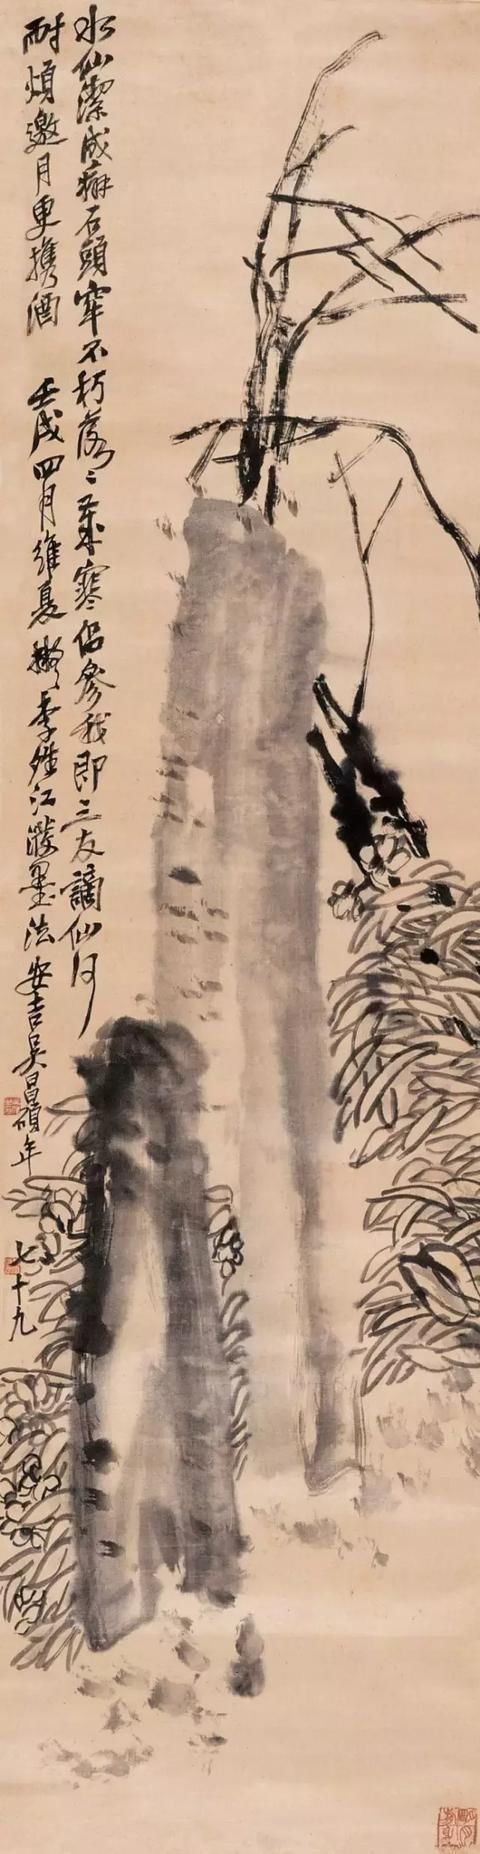 水仙潔成癖石頭牢不朽落〻歲寒侶參我即三友謫仙何
耐煩邀月更携酒 壬戌四月維夏擬李晴江潑墨法安吉吳昌碩年七十九